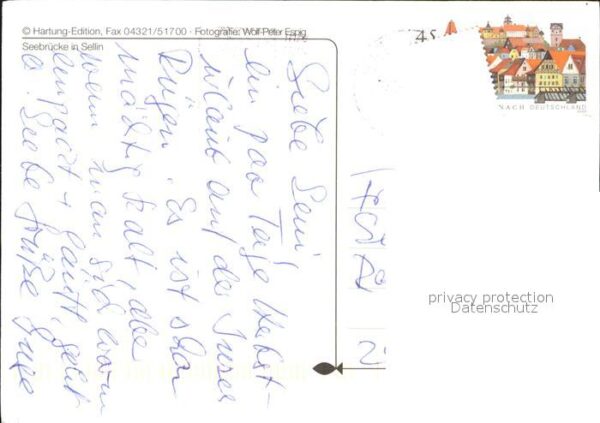 © Hartung-Edition, Fax 04321/51700 · Fotografie: Wolf-Peter Espig
Seebrücke in Sellin
45
NACH DEUTSCHLAND
Liebe
ein paar Tage Herbst-
urlaub auf der Insel
Rügen. Es ist schon
mächtig kalt, aber
wenn man sich warm
einpackt + läuft, geht
es. Liebe Grüße Inge
privacy protection
Datenschutz